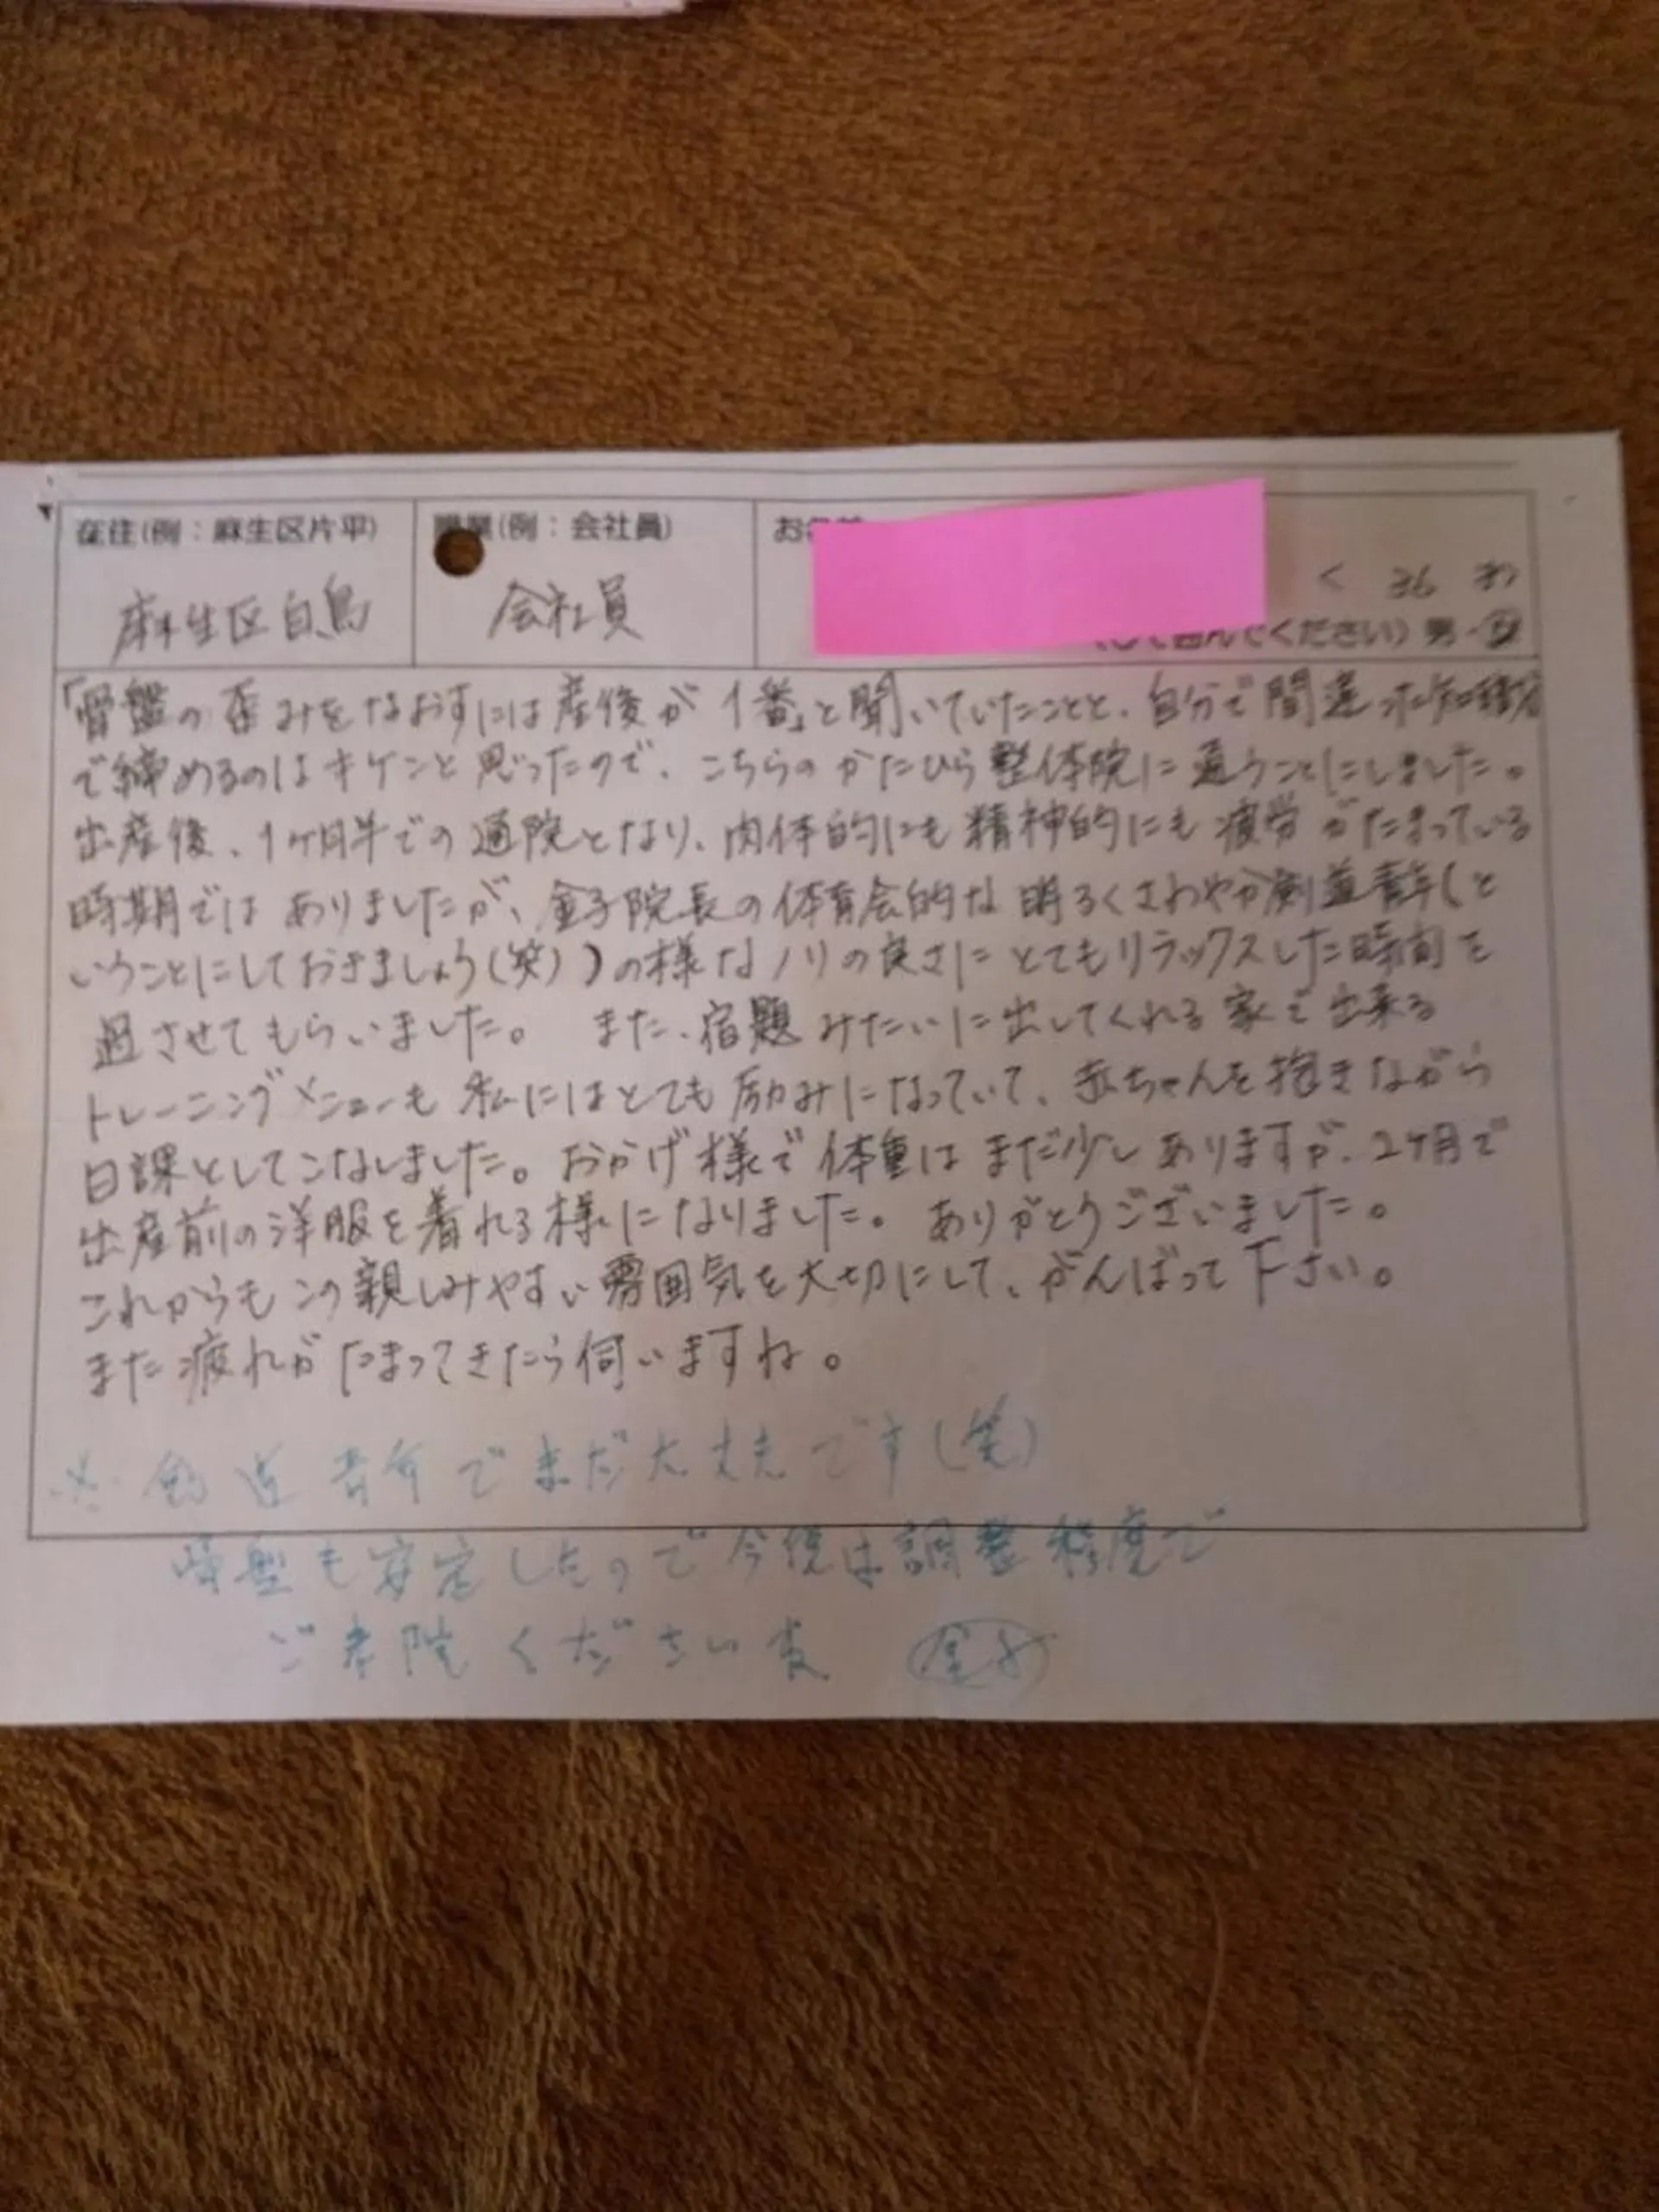 在住(例：麻生区片平) 職業(例：会社員) お名前
麻生区白鳥 会社員
して囲んでください) 男・女
「骨盤の歪みをなおすには産後が1番」と聞いていたことと、自分で間違った知識
で締めるのはキケンと思ったので、こちらのかたひら整体院に通うことにしました。
出産後、1ヶ月半での通院となり、肉体的にも精神的にも疲労がたまっている
時期ではありましたが、金子院長の体育会的な明るくさわやか剣道青年(と
いうことにしておきましょう(笑))の様なノリの良さにとてもリラックスした時間を
過させてもらいました。 また、宿題みたいに出してくれる家で出来る
トレーニングメニューも私にはとても励みになっていて、赤ちゃんを抱きながら
日課としてこなしました。おかげ様で体重はまだ少しありますが、2ヶ月で
出産前の洋服を着れる様になりました。ありがとうございました。
これからもこの親しみやすい雰囲気を大切にして、がんばって下さい。
また疲れがたまってきたら伺いますね。
※ 剣道青年でまだ大丈夫です(笑)
骨盤も安定したので今後は調整程度で
ご来院くださいませ 金子